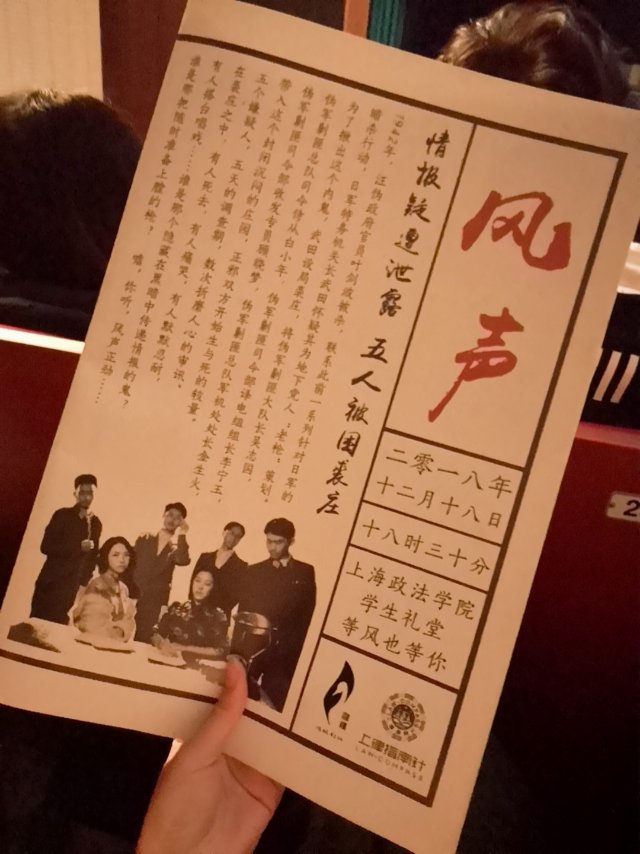 风声
二零一八年
十二月十八日
十八时三十分
上海政法学院
学生礼堂
等风也等你
上律指南针
LAW COMPASS
情报疑遭泄露 五人被困裘庄
1942年,汪伪政府官员叶剑波被杀,联系此前一系列针对日军的
暗杀行动,日军特务机关长武田怀疑其为地下党人:老枪:策划
为了揪出这个内鬼,武田设局裘庄,将伪军剿匪大队长吴志国,
伪军剿匪总队司令侍从白小年,伪军剿匪司令部译电组组长李宁玉,
伪军剿匪司令部收发专员顾晓梦,伪军剿匪总队军机处处长金生火,
带入这个封闭沉闷的庄园,正邪双方开始生与死的较量。
五个嫌疑人,五天的调查期,数次折磨人心的审讯。
在裘庄之中,有人死去,有人痛哭,有人默默忍耐,
有人搭台唱戏……谁是那个隐藏在黑暗中传递情报的鬼?
谁是那把随时准备上膛的枪? 嘘,你听,风声正劲……
2